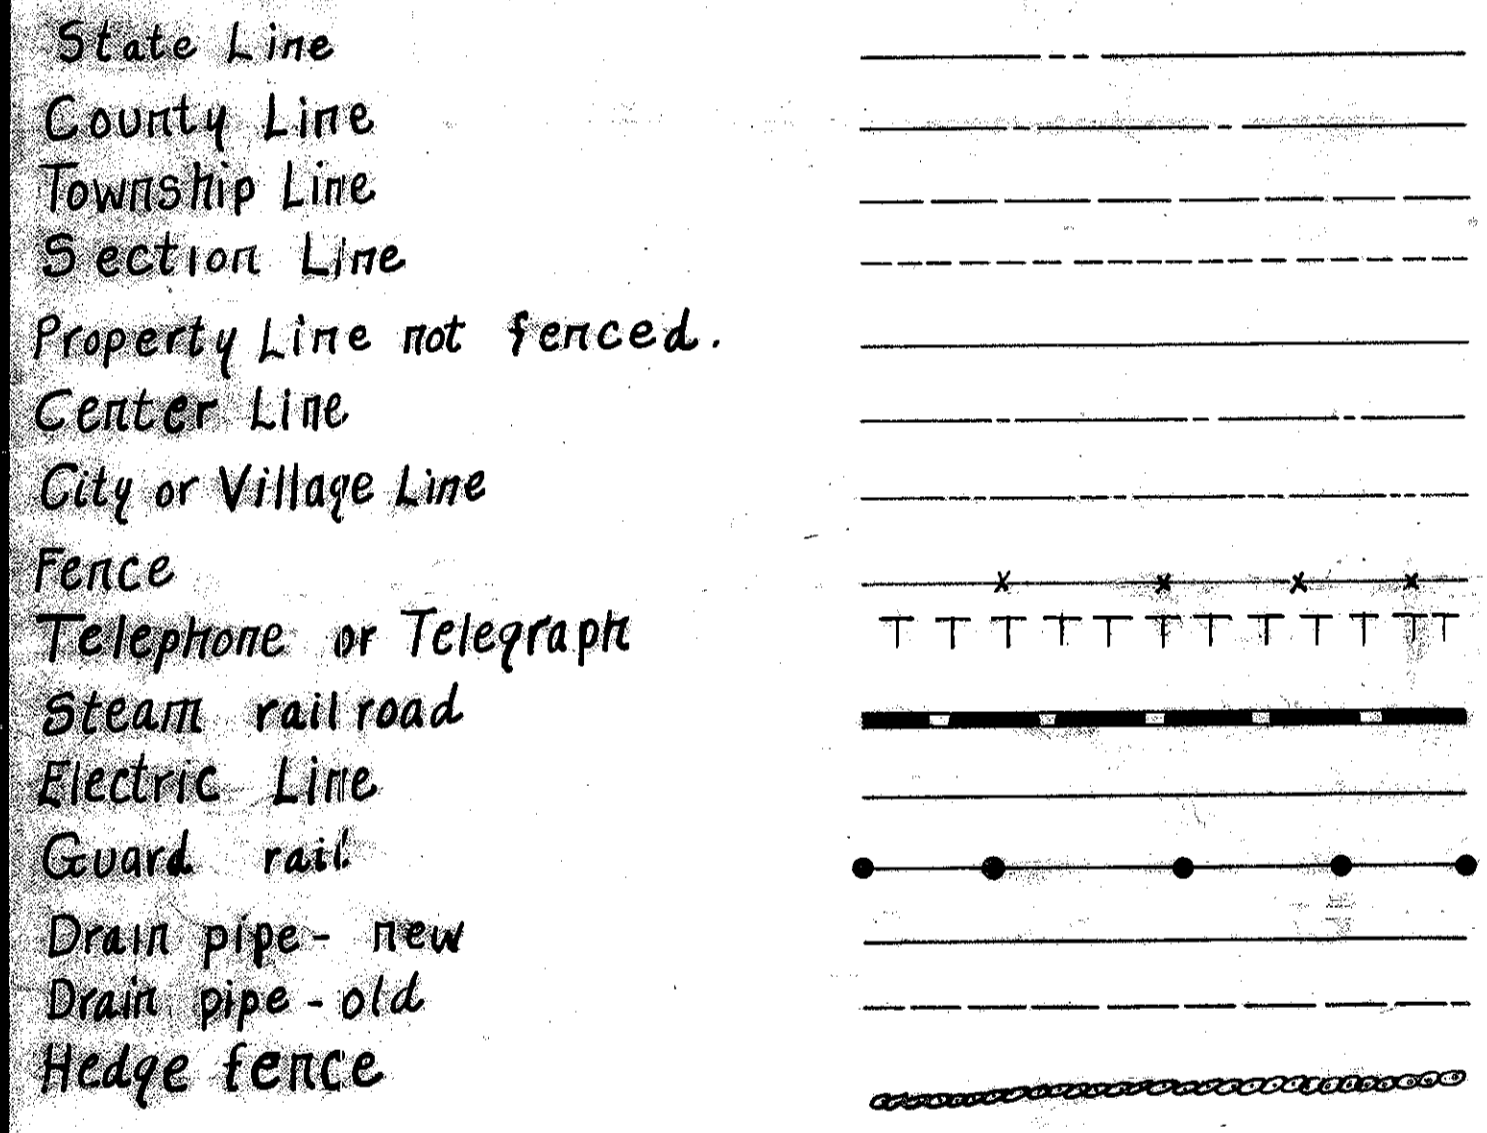 State Line
County Line
Township Line
Section Line
Property Line not fenced.
Center Line
City or Village Line
Fence
Telephone or Telegraph
Steam railroad
Electric Line
Guard rail
Drain pipe - new
Drain pipe - old
Hedge fence